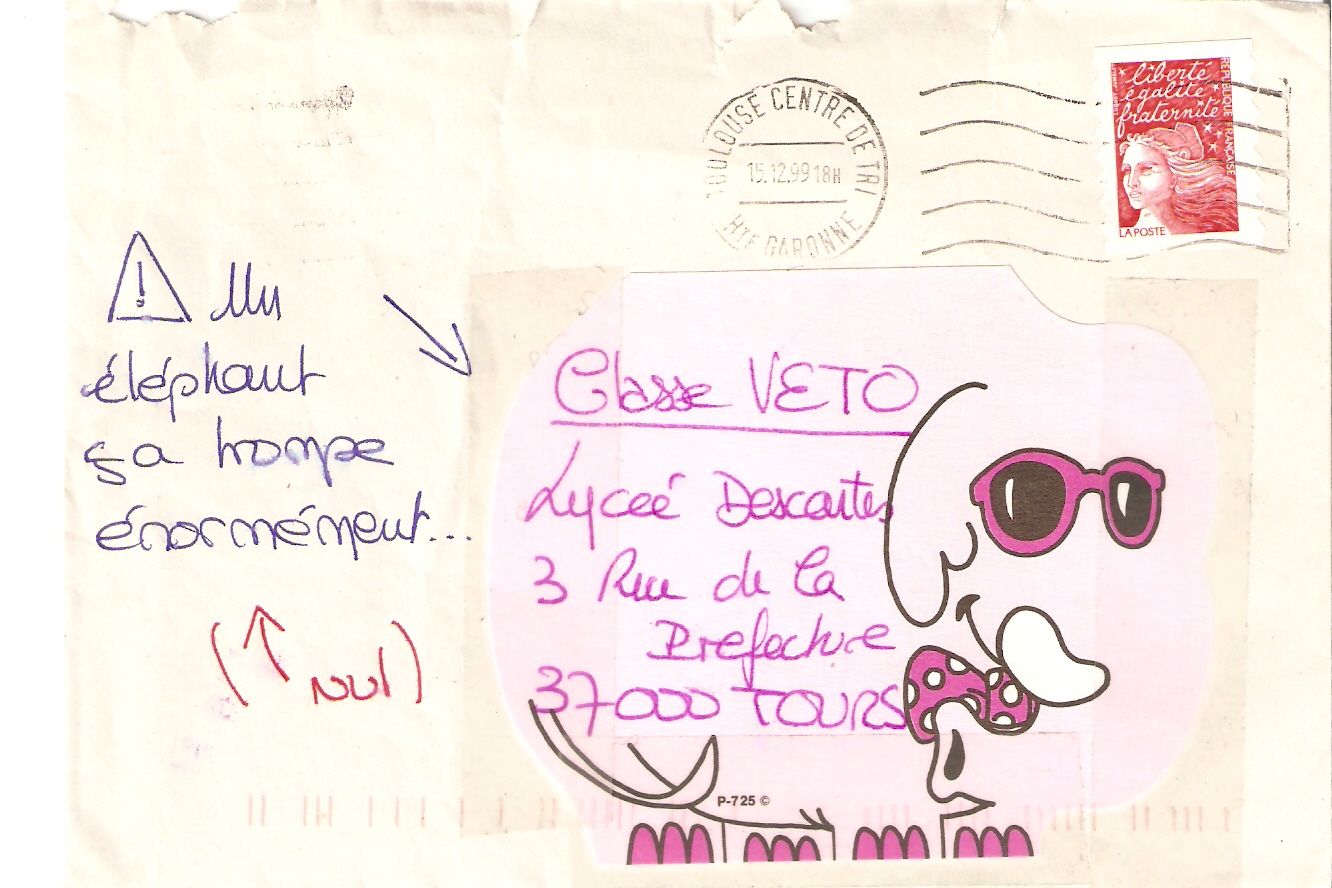 TOULOUSE CENTRE DE TRI
15.12.99 18H
HTE GARONNE
liberté
égalité
fraternité
RÉPUBLIQUE FRANÇAISE
LA POSTE
! Un
éléphant
ça trompe
énormément...
(↑ nul)
Classe VETO
Lyceé Descartes
3 Rue de la
Prefecture
37000 TOURS
P-725 ©